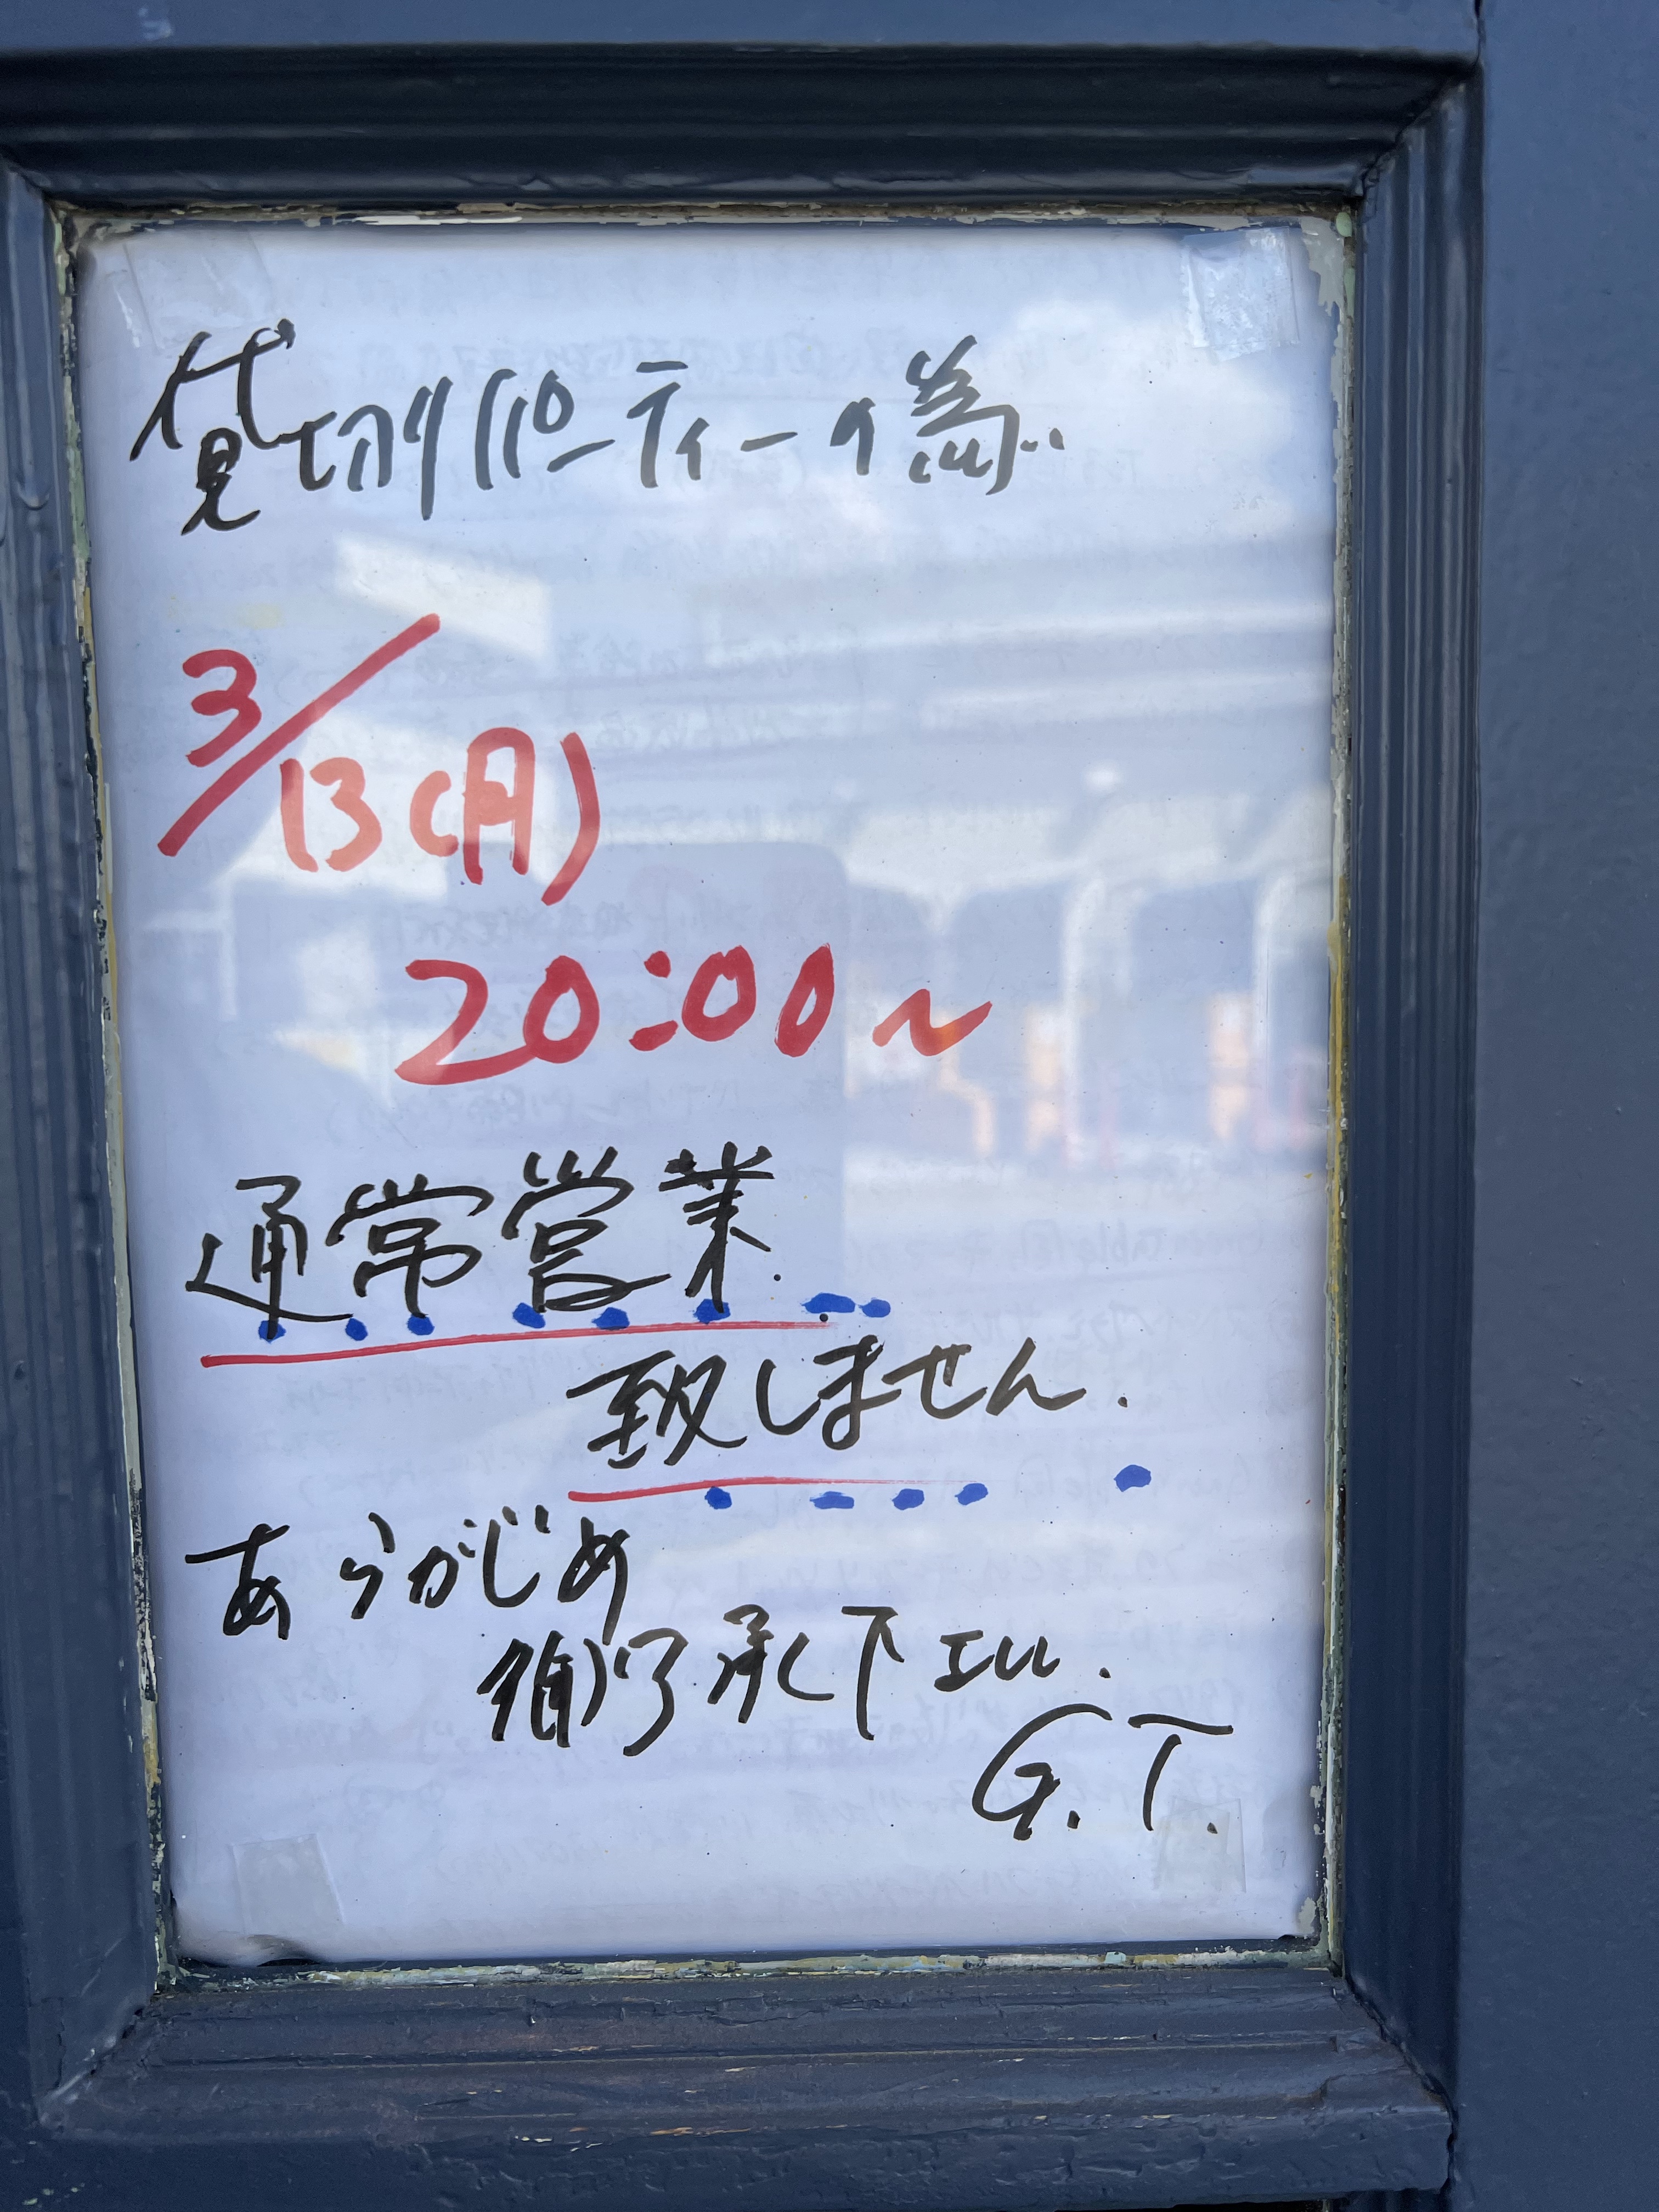 貸切パーティーの為..
3/13(月)
20:00~
通常営業
致しません.
あらかじめ
御了承下さい.
G.T.